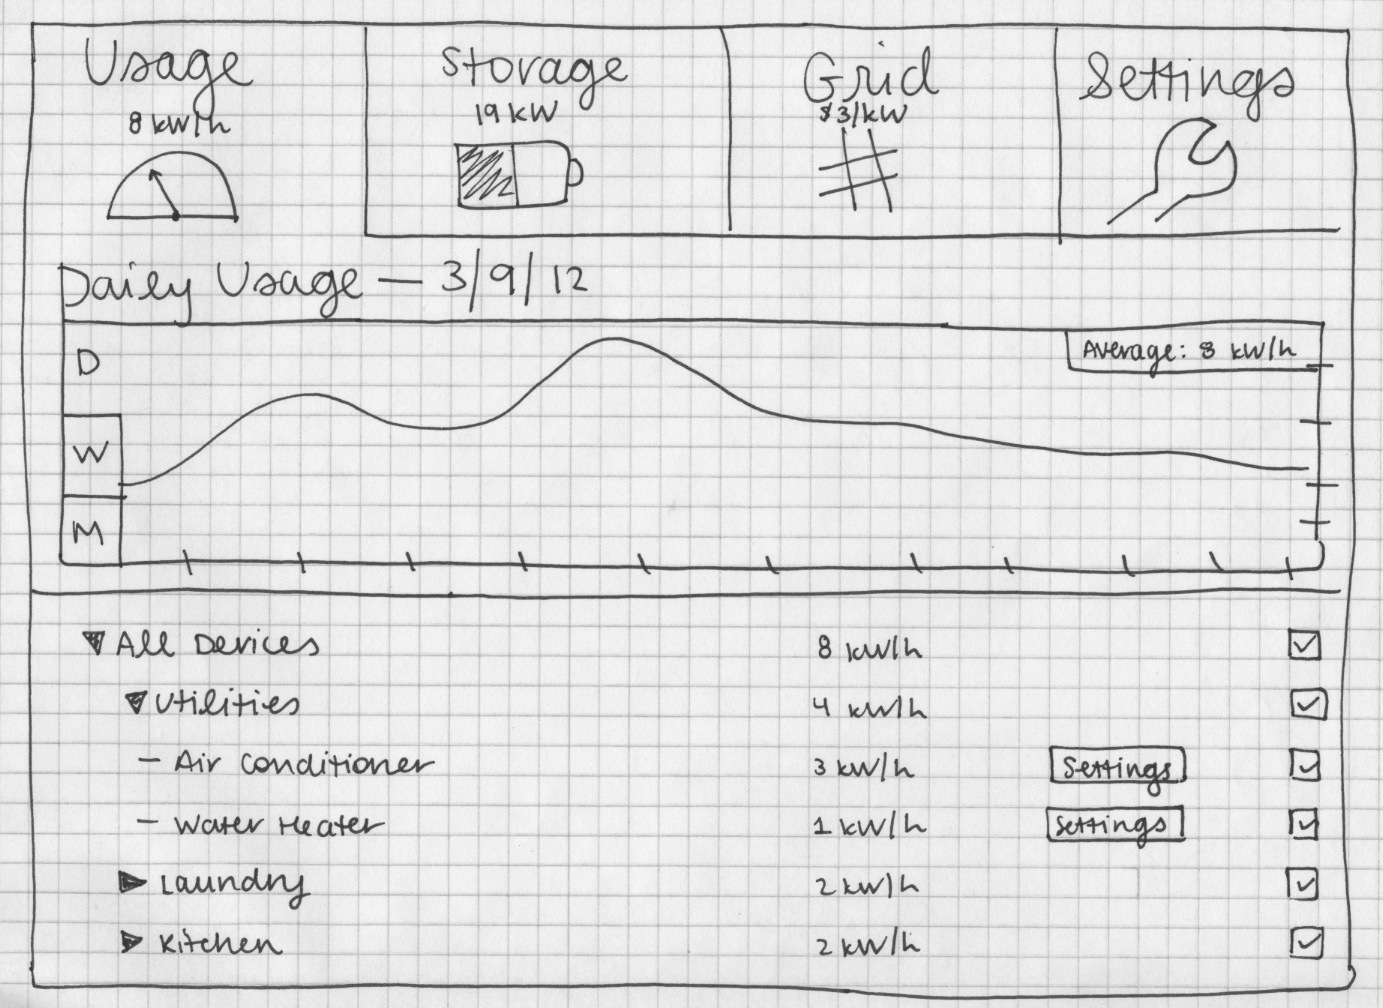 Usage
8 kW/h
Storage
19 kW
Grid
$3/kW
Settings
Daily Usage — 3/9/12
D
Average: 8 kW/h
W
M
▼ All Devices 8 kW/h
▼ Utilities 4 kW/h
— Air Conditioner 3 kW/h Settings
— Water Heater 1 kW/h Settings
▶ Laundry 2 kW/h
▶ Kitchen 2 kW/h